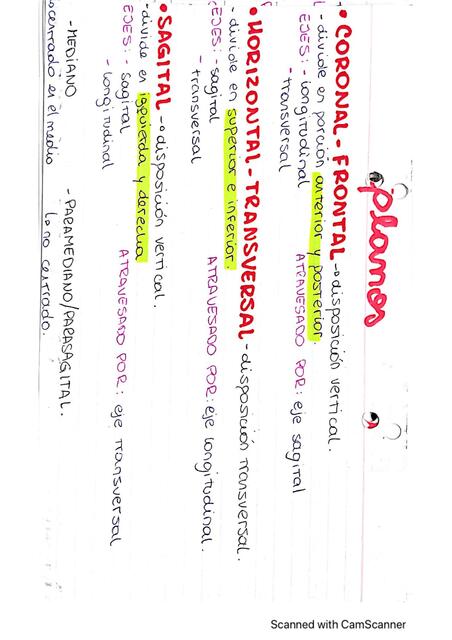 planos
• CORONAL - FRONTAL → disposición vertical.
- divide en porción anterior y posterior.
EJES: - longitudinal ATRAVESADO POR: eje sagital
- transversal
• HORIZONTAL - TRANSVERSAL - disposición transversal.
- divide en superior e inferior.
EJES: - sagital ATRAVESADO POR: eje longitudinal.
- transversal
• SAGITAL → disposición vertical.
- divide en izquierda y derecha
EJES: - sagital ATRAVESADO POR: eje transversal
- longitudinal
- MEDIANO - PARAMEDIANO/PARASAGITAL.
centrado en el medio ↳ no centrado.
Scanned with CamScanner